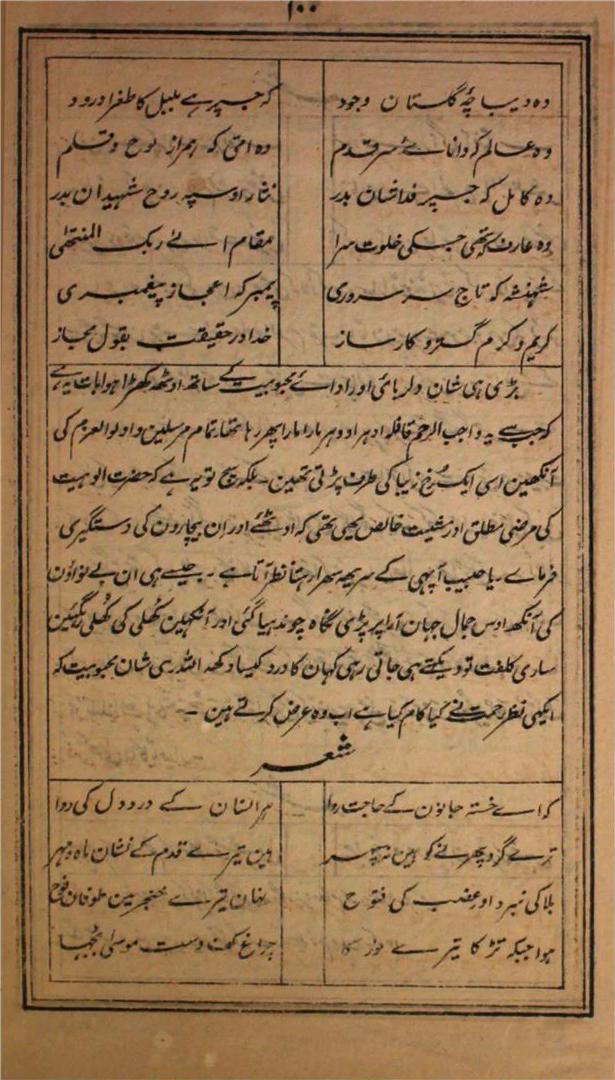 ۱۰۰
وہ دیباچۂ گلستان وجود کہ جسپر ہے بلبل کا طغرا درود
وہ عالم کہ داناے سر قدم وہ امی کہ ہمراز لوح و قلم
وہ کامل کہ جسپر فدا شان بدر نثار اوسپہ روح شہیدان بدر
وہ عارف کہ تھی جسکی خلوت سرا مقام الےٰ ربک المنتہیٰ
شہنشہ کہ تاج سر سروری پیمبر کہ اعجاز پیغمبری
کریم و کرم گستر و کارساز خدا در حقیقت بقول مجاز
بڑی ہی شان دلربائی اور اداے محبوبیت کے ساتھ اوٹھ کھڑا ہوا بات یہ ہے
کہ جسے یہ واجب الرحم قافلہ ادہر اودہر مارا مارا پھر رہا تھا تمام مرسلین و اولوالعزم کی
آنکھین اسی ایک رخ زیبا کی طرف پڑتی تھین ۔ بلکہ سچ تو یہ ہے کہ حضرت الوہیت
کی مرضی مطلق اور مشیت خالص یہی تھی کہ اوٹھئے اور ان بیچارون کی دستگیری
فرماے ۔ یا حبیب آپہی کے سر یہ سہرا رہتا نظر آتا ہے ۔ جیسے ہی ان بے نواؤن
کی آنکھ اوس جمال جہان آرا پر پڑی نگاہ چوندہیا گئی اور آنکہین کُھلی کی کُھلی رہگئین
ساری کلفت تو دیکھتے ہی جاتی رہی کہان کا درد کیسا دکھ اللہ ری شان محبوبیت کہ
ایکہی نظر رحمت نے کیا کام کیا ہے اب وہ عرض کرتے ہین ۔
شعر
کہ اے خستہ جانون کے حاجت روا ہر انسان کے درد دل کی دوا
ترے گرد پھرنے کو ہین نہ سپہر ہین تیرے قدم کے نشان ماہ و مہر
بلا کی نبرد اور غضب کی فتوح نہان تیرے خنجر مین طوفان نوح
ہوا جبکہ تڑکا تیرے نور کا چراغ کف دست موسیٰ بجہا